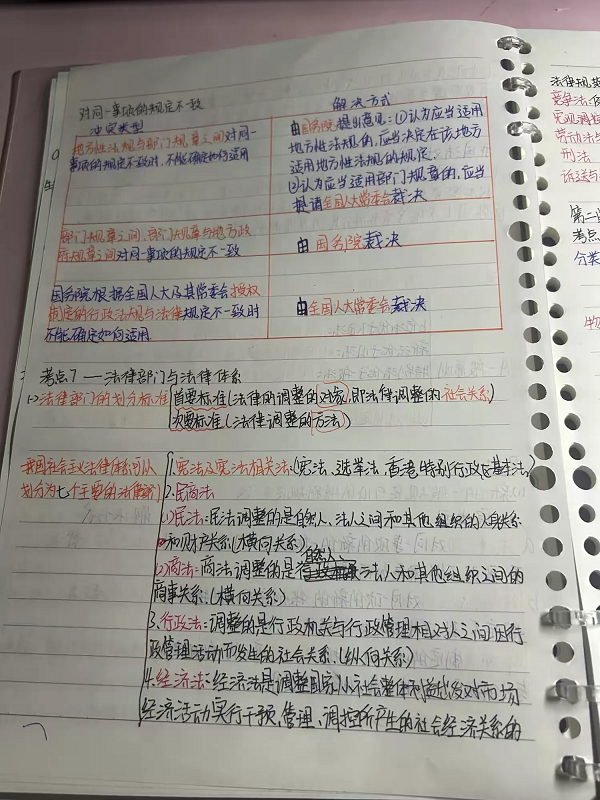 对同一事项的规定不一致
冲突类型
解决方式
地方性法规与部门规章之间对同一
事项的规定不一致时,不能确定如何适用
由国务院提出意见:①认为应当适用
地方性法规的,应当决定在该地方
适用地方性法规的规定
②认为应当适用部门规章的,应当
提请全国人大常委会裁决
部门规章之间、部门规章与地方政
府规章之间对同一事项的规定不一致
由国务院裁决
国务院根据全国人大及其常委会授权
制定的行政法规与法律规定不一致时
不能确定如何适用
由全国人大常委会裁决
考点7——法律部门与法律体系
法律部门的划分标准
首要标准(法律的调整的对象,即法律调整的社会关系)
次要标准(法律调整的方法)
我国社会主义法律体系可以
划分为七个主要的法律部门
1.宪法及宪法相关法:(宪法、选举法、香港特别行政区基本法)
2.民商法
(1)民法:民法调整的是自然人、法人之间和其他组织的人身关系
和财产关系(横向关系)
(2)商法:商法调整的是自然人、法人和其他组织之间的
商事关系.(横向关系)
3.行政法:调整的是行政机关与行政管理相对人之间因行
政管理活动而发生的社会关系.(纵向关系)
4.经济法:经济法是调整国家从社会整体利益出发对市场
经济活动实行干预、管理、调控所产生的社会经济关系的
法律规
竞争法
宏观调控
劳动法与
刑法
诉讼与
第二
考点
分类